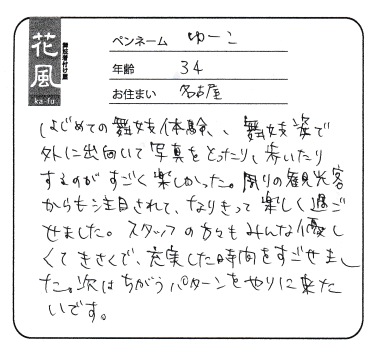 花風
舞妓着付け屋
ka-fu
ペンネーム ゆーこ
年齢 34
お住まい 名古屋
はじめての舞妓体験、舞妓姿で
外に出向いて写真をとったり、歩いたり
するのがすごく楽しかった。周りの観光客
からも注目されて、なりきって楽しく過ご
せました。スタッフの方々もみんな優し
くてきさくで、充実した時間をすごせまし
た。次はちがうパターンをやりに来た
いです。